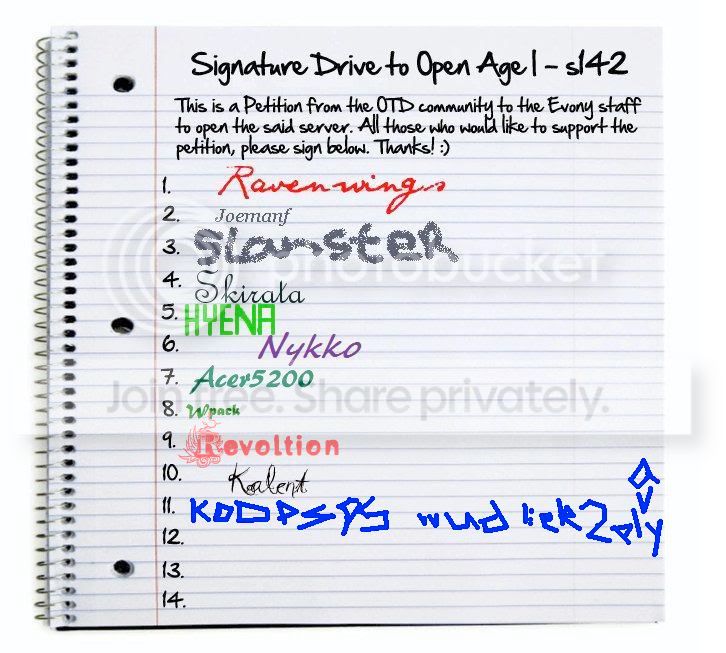 Signature Drive to Open Age 1 - s142
This is a Petition from the OTD community to the Evony staff
to open the said server. All those who would like to support the
petition, please sign below. Thanks! :)
1. Ravenwings
2. Joemanf
3. Slamster
photobucket
4. Skirata
5. HYENA
6. Nykko
7. Acer5200
Join free. Share privately.
8. Wpack
9. Revoltion
10. Kalent
11. wud liek 2 play
12.
13.
14.